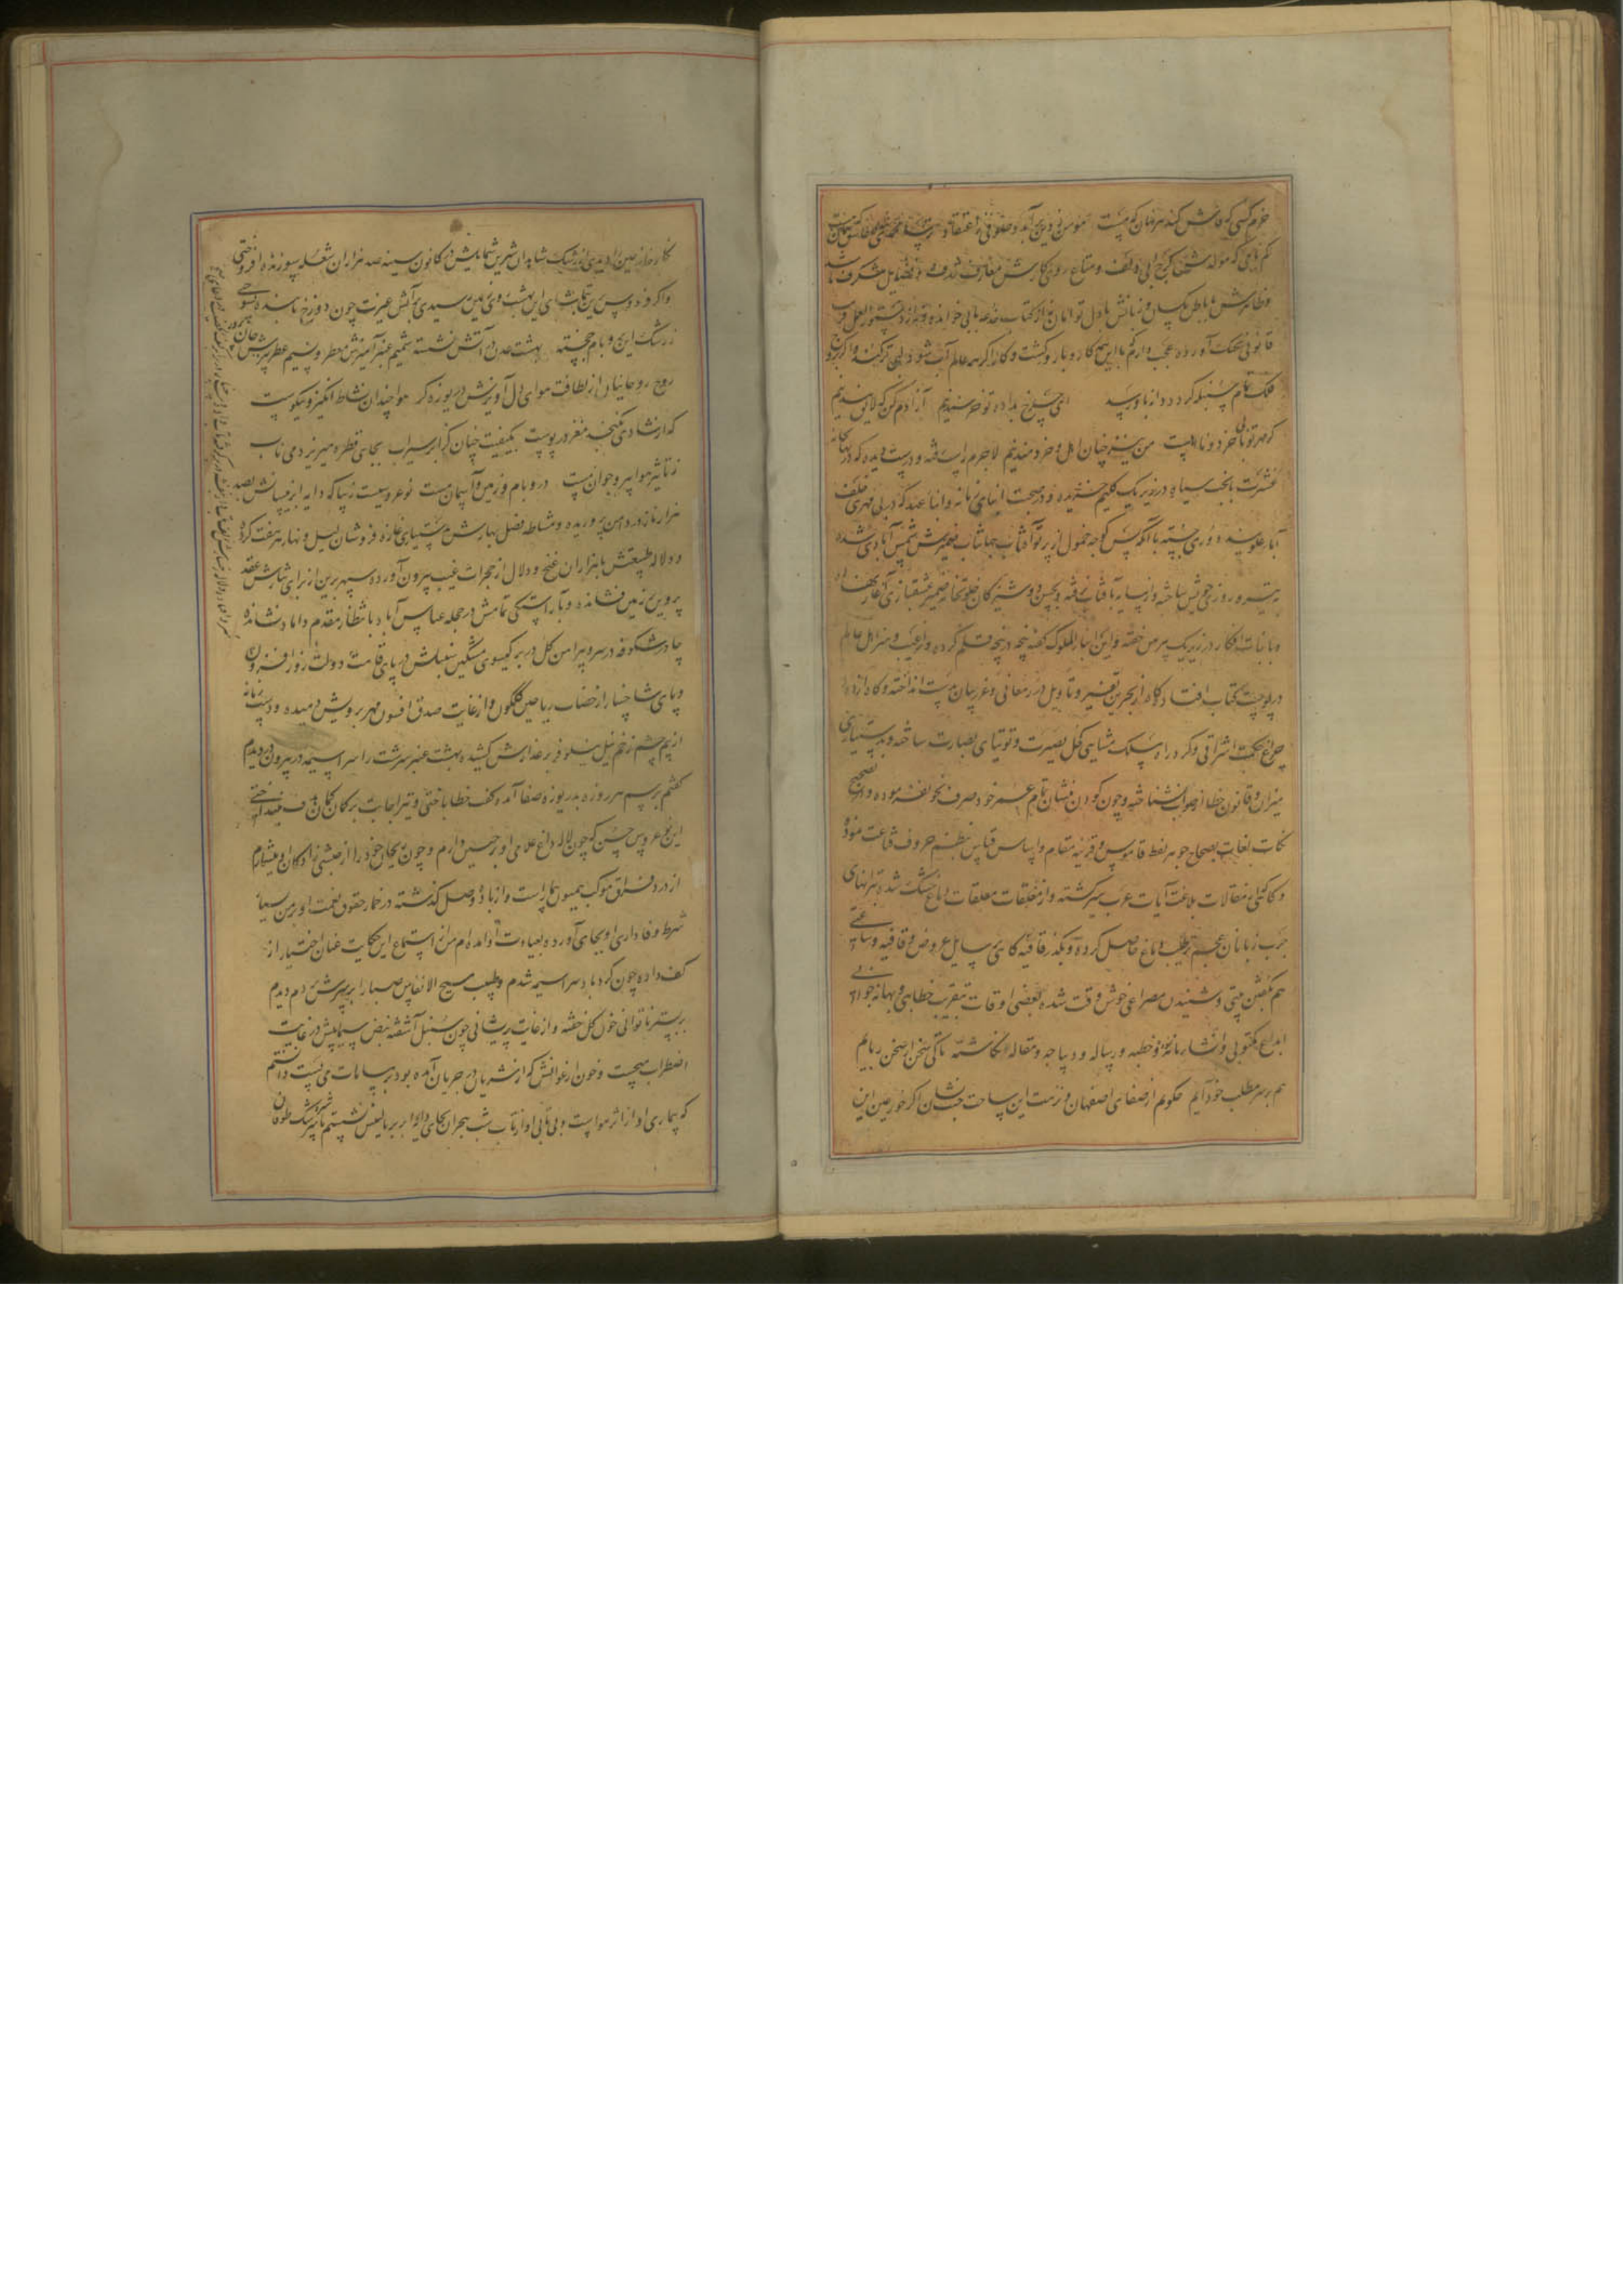 خرم کسی که فاش کند هر نهان که هست مؤمن بو دین برآید و صوفی ز اعتقاد
کم مایگی که مولدش و متاع روی کارش معارف
و ظاهرش با باطن یکسان و زبانش با دل توامان نه از کتاب خدعه بابی خوانده و نه از دستور العمل فریب
قانونی بچنگ آورده عجب دارم که با این همه کار و بار و کشت و کار اگر همه عالم آب شود لبی تر کند و اگر مزرع
فلک تمام سنبله گردد دو از باو رسد ای چرخ بداده تو خرسندیم آزادم کن که لایق بندیم
گر مهر تو با بی خرد و نااهلست من نیز چنان اهل و خردمندیم لاجرم
عشرت با بخت سیاه در زیر یک گلیم خزیده و در صحبت ابنای زمانه و ابناء عهد که در بی مهری خلف
آباء علویند دوری جسته با آنکه پس کوچه خمول از پرتو آفتاب جهانتاب ضمیرش شمس آبادی شده
تیره روزی خویش ساخته و از سایه بآفتاب نرفته و بحسن دوشیزگان خلوتخانه ضمیر عشقبازی آغاز نهاده
و با بنات افکار در زیر یک پیرهن خفته و این انباء الملوک گفته پنجه در پنجه قلم کرده و از عیب و هنر اهل عالم
در پوست کتاب افتاده گاه از بحرین تفسیر و تأویل درر معانی و غرر بیان بدست انداخته و گاه از دوده
چراغ حکمت اشراقی و گرد راه مسلک مشایی کحل بصیرت و توتیای بصارت ساخته و بدستیاری
میزان و قانون خطا از صواب شناخته و چون کودن منشان تمام عمر خود صرف نحو نفرموده و از تصحیح
نکات لغات بصحاح جوهر لفظ قاموس و قرینه مقام و اساس قیاس بنظم حروف قناعت نموده
و گاهی از مقالات بلاغت آیات عرب سیر گشته و از مغلقات معلقات دماغ خشک شده بترانهای
چرب زبانان عجم ترطیب دماغ حاصل کرده و بگذر قافیه گاهی بر مسایل عروض و قافیه و ساعتی
هم بگفتن بیتی و شنیدن مصراعی خوش وقت شده بعضی اوقات بتقریب خطابی و بهانه جوابی
ابداع مکتوبی و انشاء نامه و خطبه و رساله و دیباجه و مقاله انگاشته تا کی سخن از سخن ربایم
هم بر سر مطلب خود آیم چگویم از صفای اصفهان و نزهت این ساحت جنت نشان اگر حور عین این
نگارخانه چین را دیدی از رشک شاهدان شیرین شمایلش در کانون سینه صد هزاران شعله سوزنده افروختی
و اگر فردوس برین بتماشای این بهشت روی زمین رسیدی بر آتش غیرت چون دوزخ تابنده بسوختی
ز رشک این در و بام خجسته بهشت عدن در آتش نشسته شمیم عنبر آمیزش معطر و نسیم عطر بیزش جان پرور
روح روحانیان از لطافت هوای دل آویزش دریوزه گر هوا چندان نشاط انگیز و نیکوست
که از شادی نگنجد مغز در پوست بکیفیت چنان کز ابر سیراب بجای قطره میریزد می ناب
ز تأثیر هوا پیر و جوان مست در و بام و زمین و آسمان مست نو عروسیست زیبا که دایه ابر نیسانش بصد
هزار ناز در دامن پروریده و مشاطه فصل بهارش بدستیاری غازه فروشان لیل و نهار هر هفت کرده
و دلاله طبیعتش با هزاران غنج و دلال از حجرات غیب بیرون آورده سپهر برین از برای نثارش عقد
پروین بر زمین فشانده و بآراستگی تمامش در حجله عباس آباد بانتظار مقدم داماد نشانده
چادر شکوفه در سر و پیراهن گل در بر گیسوی مشکین سنبلش در پای قامت دولت روز افزون
و پای شاخسار از خضاب ریاحین گلگون و از غایت صدق افسون مهر بر رویش دمیده و دست زمانه
از بیم چشم زخم نیل نیلوفر بر عذارش کشیده بهشت عنبر سرشت را سراسیمه در بیرون در دیدم
گفتم برسم هر روزه بدریوزه صفا آمده گفت خطا باختی و تیر اجابت بر کمان گمان بهدف نینداختی
این نوعروس چمن که چون لاله داغ غلامی او بر جبین دارم و چون ریحان خود را از حبشی زادگان او میشمارم
از درد فراق موکب همیون بیمار است و از باده وصل گذشته در خمار حقوق نعمت او بر من بسیار
شرط وفاداری او بجای آورده بعیادت او آمده ام من از استماع این حکایت عنان اختیار از
کف داده چون گردباد سراسیمه شدم و طبیب مسیح الانفاس صبا را بر سرش دم دیدم
بر بستر ناتوانی خون گل خفته و از غایت پریشانی چون سنبل آشفته نبض سیمابیش در غایت
اضطراب میجست و خون ارغوانش که از شریان در جریان آمده بود بر مسامات می نیست دانستم
که بیماری او از اثر هواست و بی تابی او از تاب شب هجران بجای دلوا بر بالینش نشستم